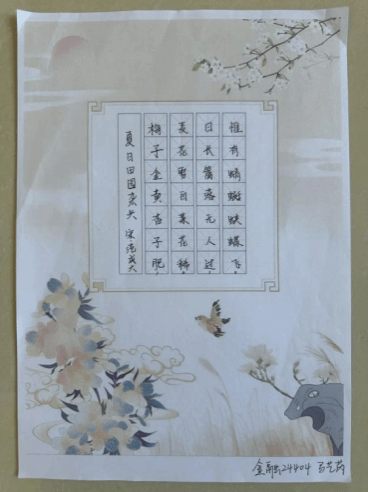 夏日田园杂兴 宋范成大
梅子金黄杏子肥,
麦花雪白菜花稀。
日长篱落无人过,
惟有蜻蜓蛱蝶飞。
金融24404